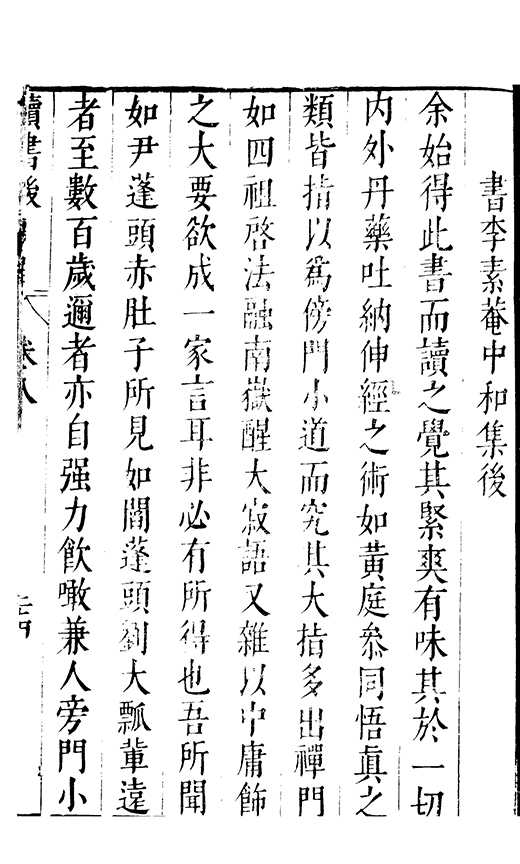 書李素菴中和集後
余始得此書而讀之覺其緊爽有味其於一切
内外丹藥吐納伸經之術如黄庭叅同悟眞之
類皆指以爲傍門小道而究其大指多出禪門
如四祖啓法融南嶽醒大寂語又雜以中庸飾
之大要欲成一家言耳非必有所得也吾所聞
如尹蓬頭赤肚子所見如閻蓬頭劉大瓢輩遠
者至數百歲邇者亦自强力飲噉兼人旁門小
讀書後 卷八 二十四